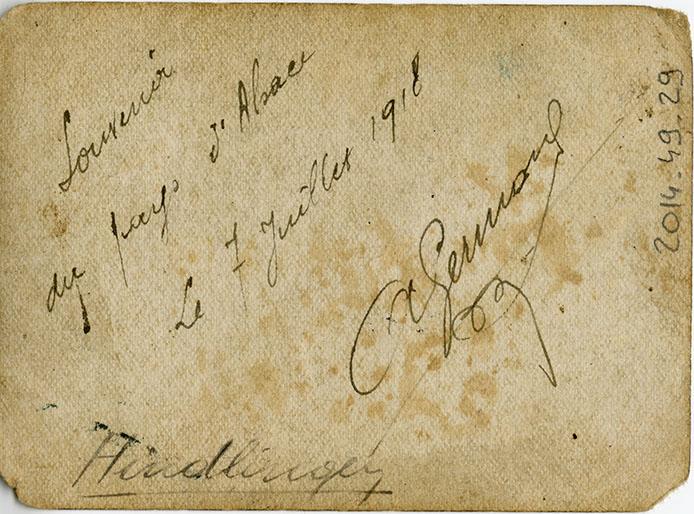 Souvenir
du pays d'Alsace
Le 7 Juillet 1918
Germond
Hindlinger
2014-49-29